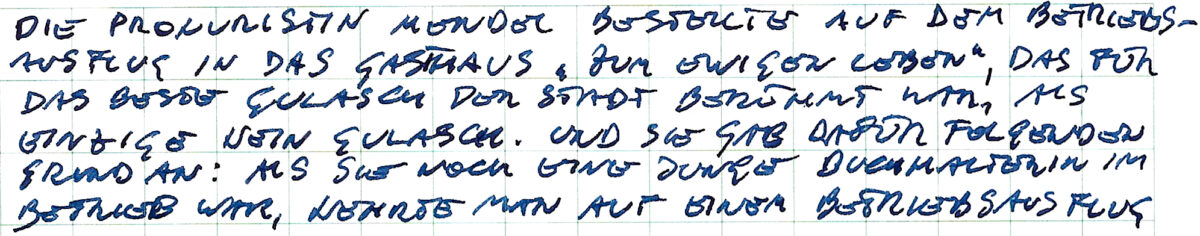 DIE PROKURISTIN MENDEL BESTELLTE AUF DEM BETRIEBS-
AUSFLUG IN DAS GASTHAUS „ZUM EWIGEN LEBEN“, DAS FÜR
DAS BESTE GULASCH DER STADT BERÜHMT WAR, ALS
EINZIGE KEIN GULASCH. UND SIE GAB DAFÜR FOLGENDEN
GRUND AN: ALS SIE NOCH EINE JUNGE BUCHHALTERIN IM
BETRIEB WAR, KEHRTE MAN AUF EINEM BETRIEBSAUSFLUG